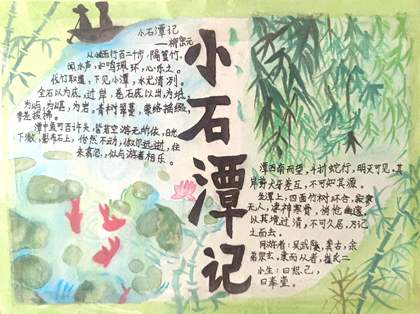 小石潭记
小石潭记
——柳宗元
从小丘西行百二十步，隔篁竹，
闻水声，如鸣珮环，心乐之。
伐竹取道，下见小潭，水尤清冽。
全石以为底，近岸，卷石底以出，为坻，
为屿，为嵁，为岩。青树翠蔓，蒙络摇缀，
参差披拂。
潭中鱼可百许头，皆若空游无所依，日光
下澈，影布石上，怡然不动，俶尔远逝，往
来翕忽，似与游者相乐。
潭西南而望，斗折蛇行，明灭可见。其
岸势犬牙差互，不可知其源。
坐潭上，四面竹树环合，寂寥
无人，凄神寒骨，悄怆幽邃。
以其境过清，不可久居，乃记
之而去。
同游者：吴武陵，龚古，余
弟宗玄，隶而从者，崔氏二
小生：曰恕己，
曰奉壹。